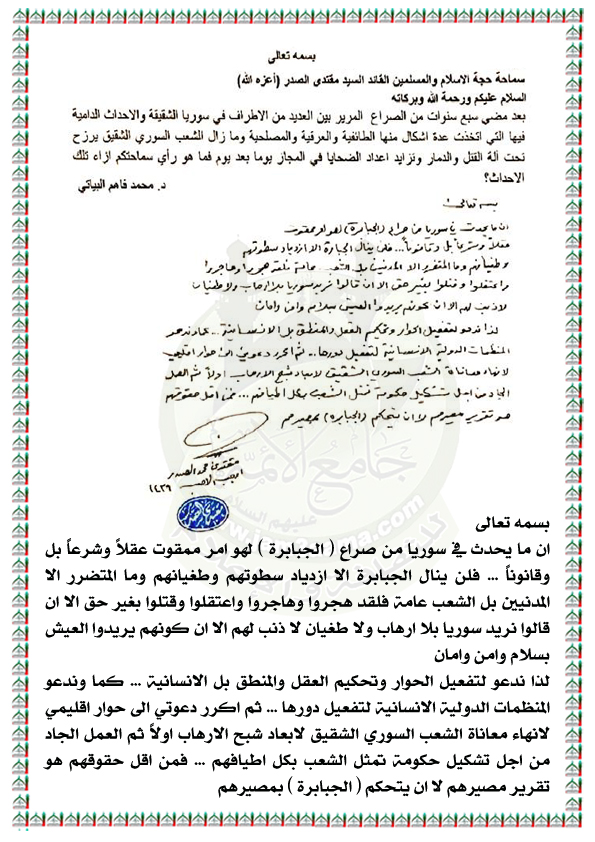 بسمه تعالى
سماحة حجة الاسلام والمسلمين القائد السيد مقتدى الصدر (أعزه الله)
السلام عليكم ورحمة الله وبركاته
بعد مضي سبع سنوات من الصراع المرير بين العديد من الاطراف في سوريا الشقيقة والاحداث الدامية
فيها التي اتخذت عدة اشكال منها الطائفية والعرقية والمصلحية وما زال الشعب السوري الشقيق يرزح
تحت آلة القتل والدمار وتزايد اعداد الضحايا في المجاز يوما بعد يوم فما هو رأي سماحتكم ازاء تلك
الاحداث؟
د. محمد فاهم البياتي
بسمه تعالى
ان ما يحدث في سوريا من صراع (الجبابرة) لهو امر ممقوت
عقلاً وشرعاً بل وقانوناً... فلن ينال الجبابرة الا ازدياد سطوتهم
وطغيانهم وما المتضرر الا المدنيين بل الشعب عامة فلقد هجروا وهاجروا
واعتقلوا وقتلوا بغير حق الا ان قالوا نريد سوريا بلا ارهاب ولا طغيان
لا ذنب لهم الا ان كونهم يريدوا العيش بسلام وامن وامان
لذا ندعو لتفعيل الحوار وتحكيم العقل والمنطق بل الانسانية... كما وندعو
المنظمات الدولية الانسانية لتفعيل دورها.. ثم اكرر دعوتي الى حوار اقليمي
لانهاء معاناة الشعب السوري الشقيق لابعاد شبح الارهاب اولاً ثم العمل
الجاد من اجل تشكيل حكومة تمثل الشعب بكل اطيافهم... فمن اقل حقوقهم
هو تقرير مصيرهم لا ان يتحكم (الجبابرة) بمصيرهم
مقتدى محمد الصدر
١٤٣٩
جامع الأئمة
عليهم السلام
بسمه تعالى
ان ما يحدث في سوريا من صراع ( الجبابرة ) لهو امر ممقوت عقلاً وشرعاً بل
وقانوناً ... فلن ينال الجبابرة الا ازدياد سطوتهم وطغيانهم وما المتضرر الا
المدنيين بل الشعب عامة فلقد هجروا وهاجروا واعتقلوا وقتلوا بغير حق الا ان
قالوا نريد سوريا بلا ارهاب ولا طغيان لا ذنب لهم الا ان كونهم يريدوا العيش
بسلام وامن وامان
لذا ندعو لتفعيل الحوار وتحكيم العقل والمنطق بل الانسانية ... كما وندعو
المنظمات الدولية الانسانية لتفعيل دورها ... ثم اكرر دعوتي الى حوار اقليمي
لانهاء معاناة الشعب السوري الشقيق لابعاد شبح الارهاب اولاً ثم العمل الجاد
من اجل تشكيل حكومة تمثل الشعب بكل اطيافهم ... فمن اقل حقوقهم هو
تقرير مصيرهم لا ان يتحكم ( الجبابرة ) بمصيرهم